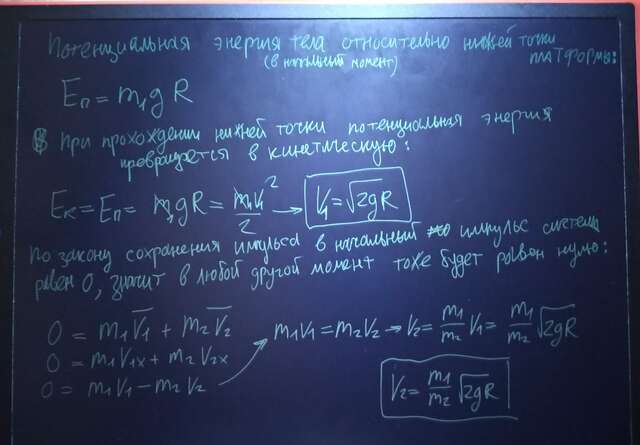 Потенциальная энергия тела относительно нижней точки
(в начальный момент) платформы:
Eп = m₁gR
При прохождении нижней точки потенциальная энергия
превращается в кинетическую:
Eк = Eп = m₁gR = m₁V₁²/2 → V₁ = √2gR
По закону сохранения импульса в начальный импульс системы
равен 0, значит в любой другой момент тоже будет равен нулю:
0 = m₁V̅₁ + m₂V̅₂
0 = m₁V₁x + m₂V₂x
0 = m₁V₁ − m₂V₂ → m₁V₁ = m₂V₂ → V₂ = m₁/m₂ V₁ = m₁/m₂ √2gR
V₂ = m₁/m₂ √2gR